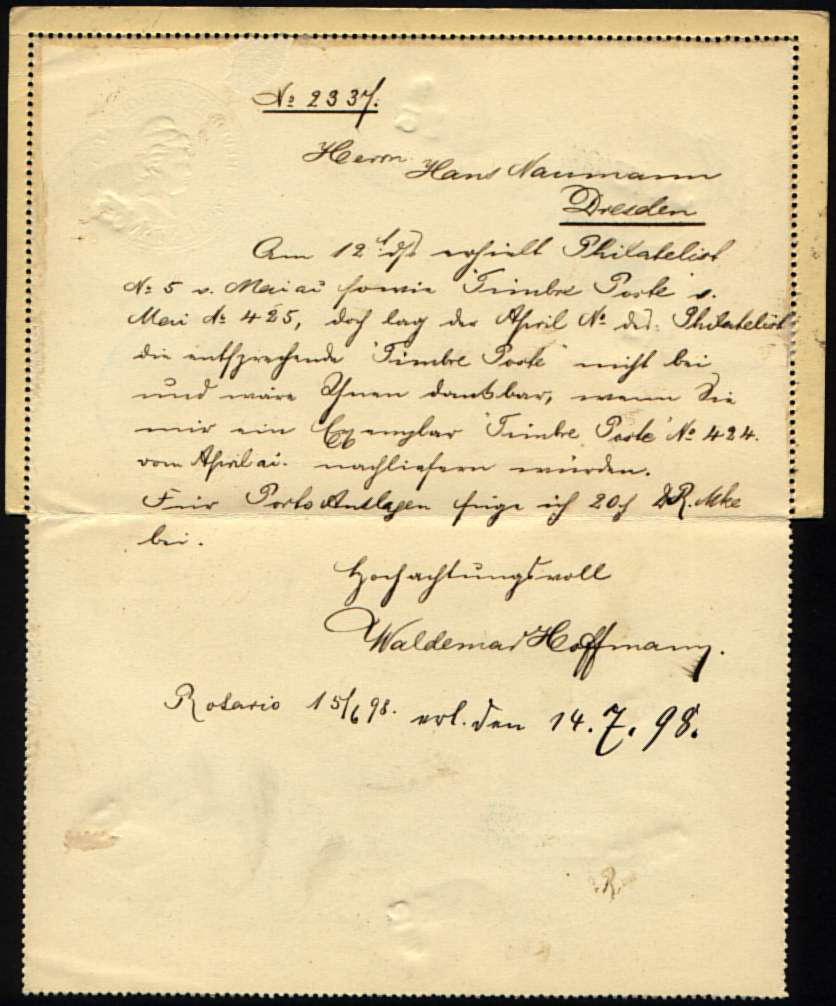 № 2337.
Herrn Hans Naumann
Dresden
Am 12t. ds. erhielt Philatelist
№ 5 v. Mai ai sowie "Timbre Poste" v.
Mai № 425, doch lag der April № des Philatelist
die entsprechende "Timbre Poste" nicht bei
und wäre Ihnen dankbar, wenn Sie
mir ein Exemplar "Timbre Poste" № 424.
vom April ai. nachliefern würden.
Für Porto Auslagen füge ich 20 R. Mke
bei.
Hochachtungsvoll
Waldemar Hoffmann.
Rosario 15/6 98. erl. den 14.7.98.
R.